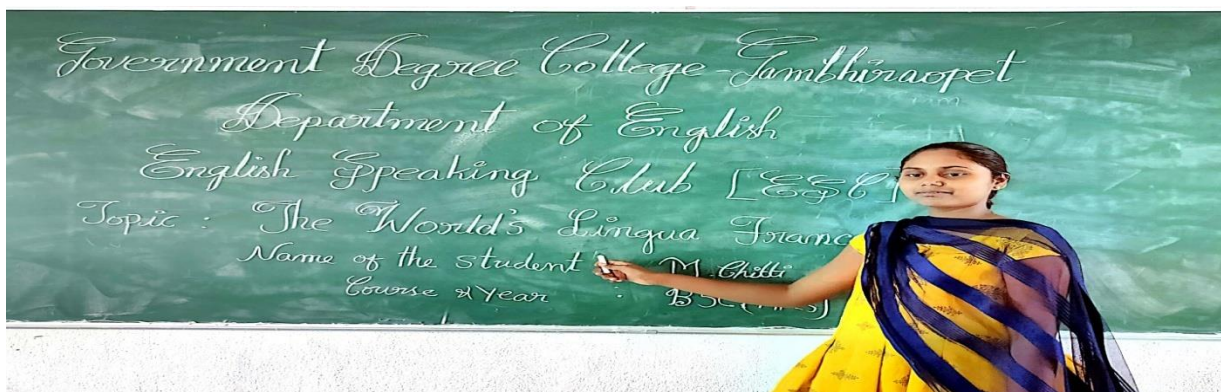 Government Degree College - Gambhiraopet
Department of English
English Speaking Club [ESC]
Topic : The World's Lingua Franc
Name of the student : M. Chitti
Course & Year :